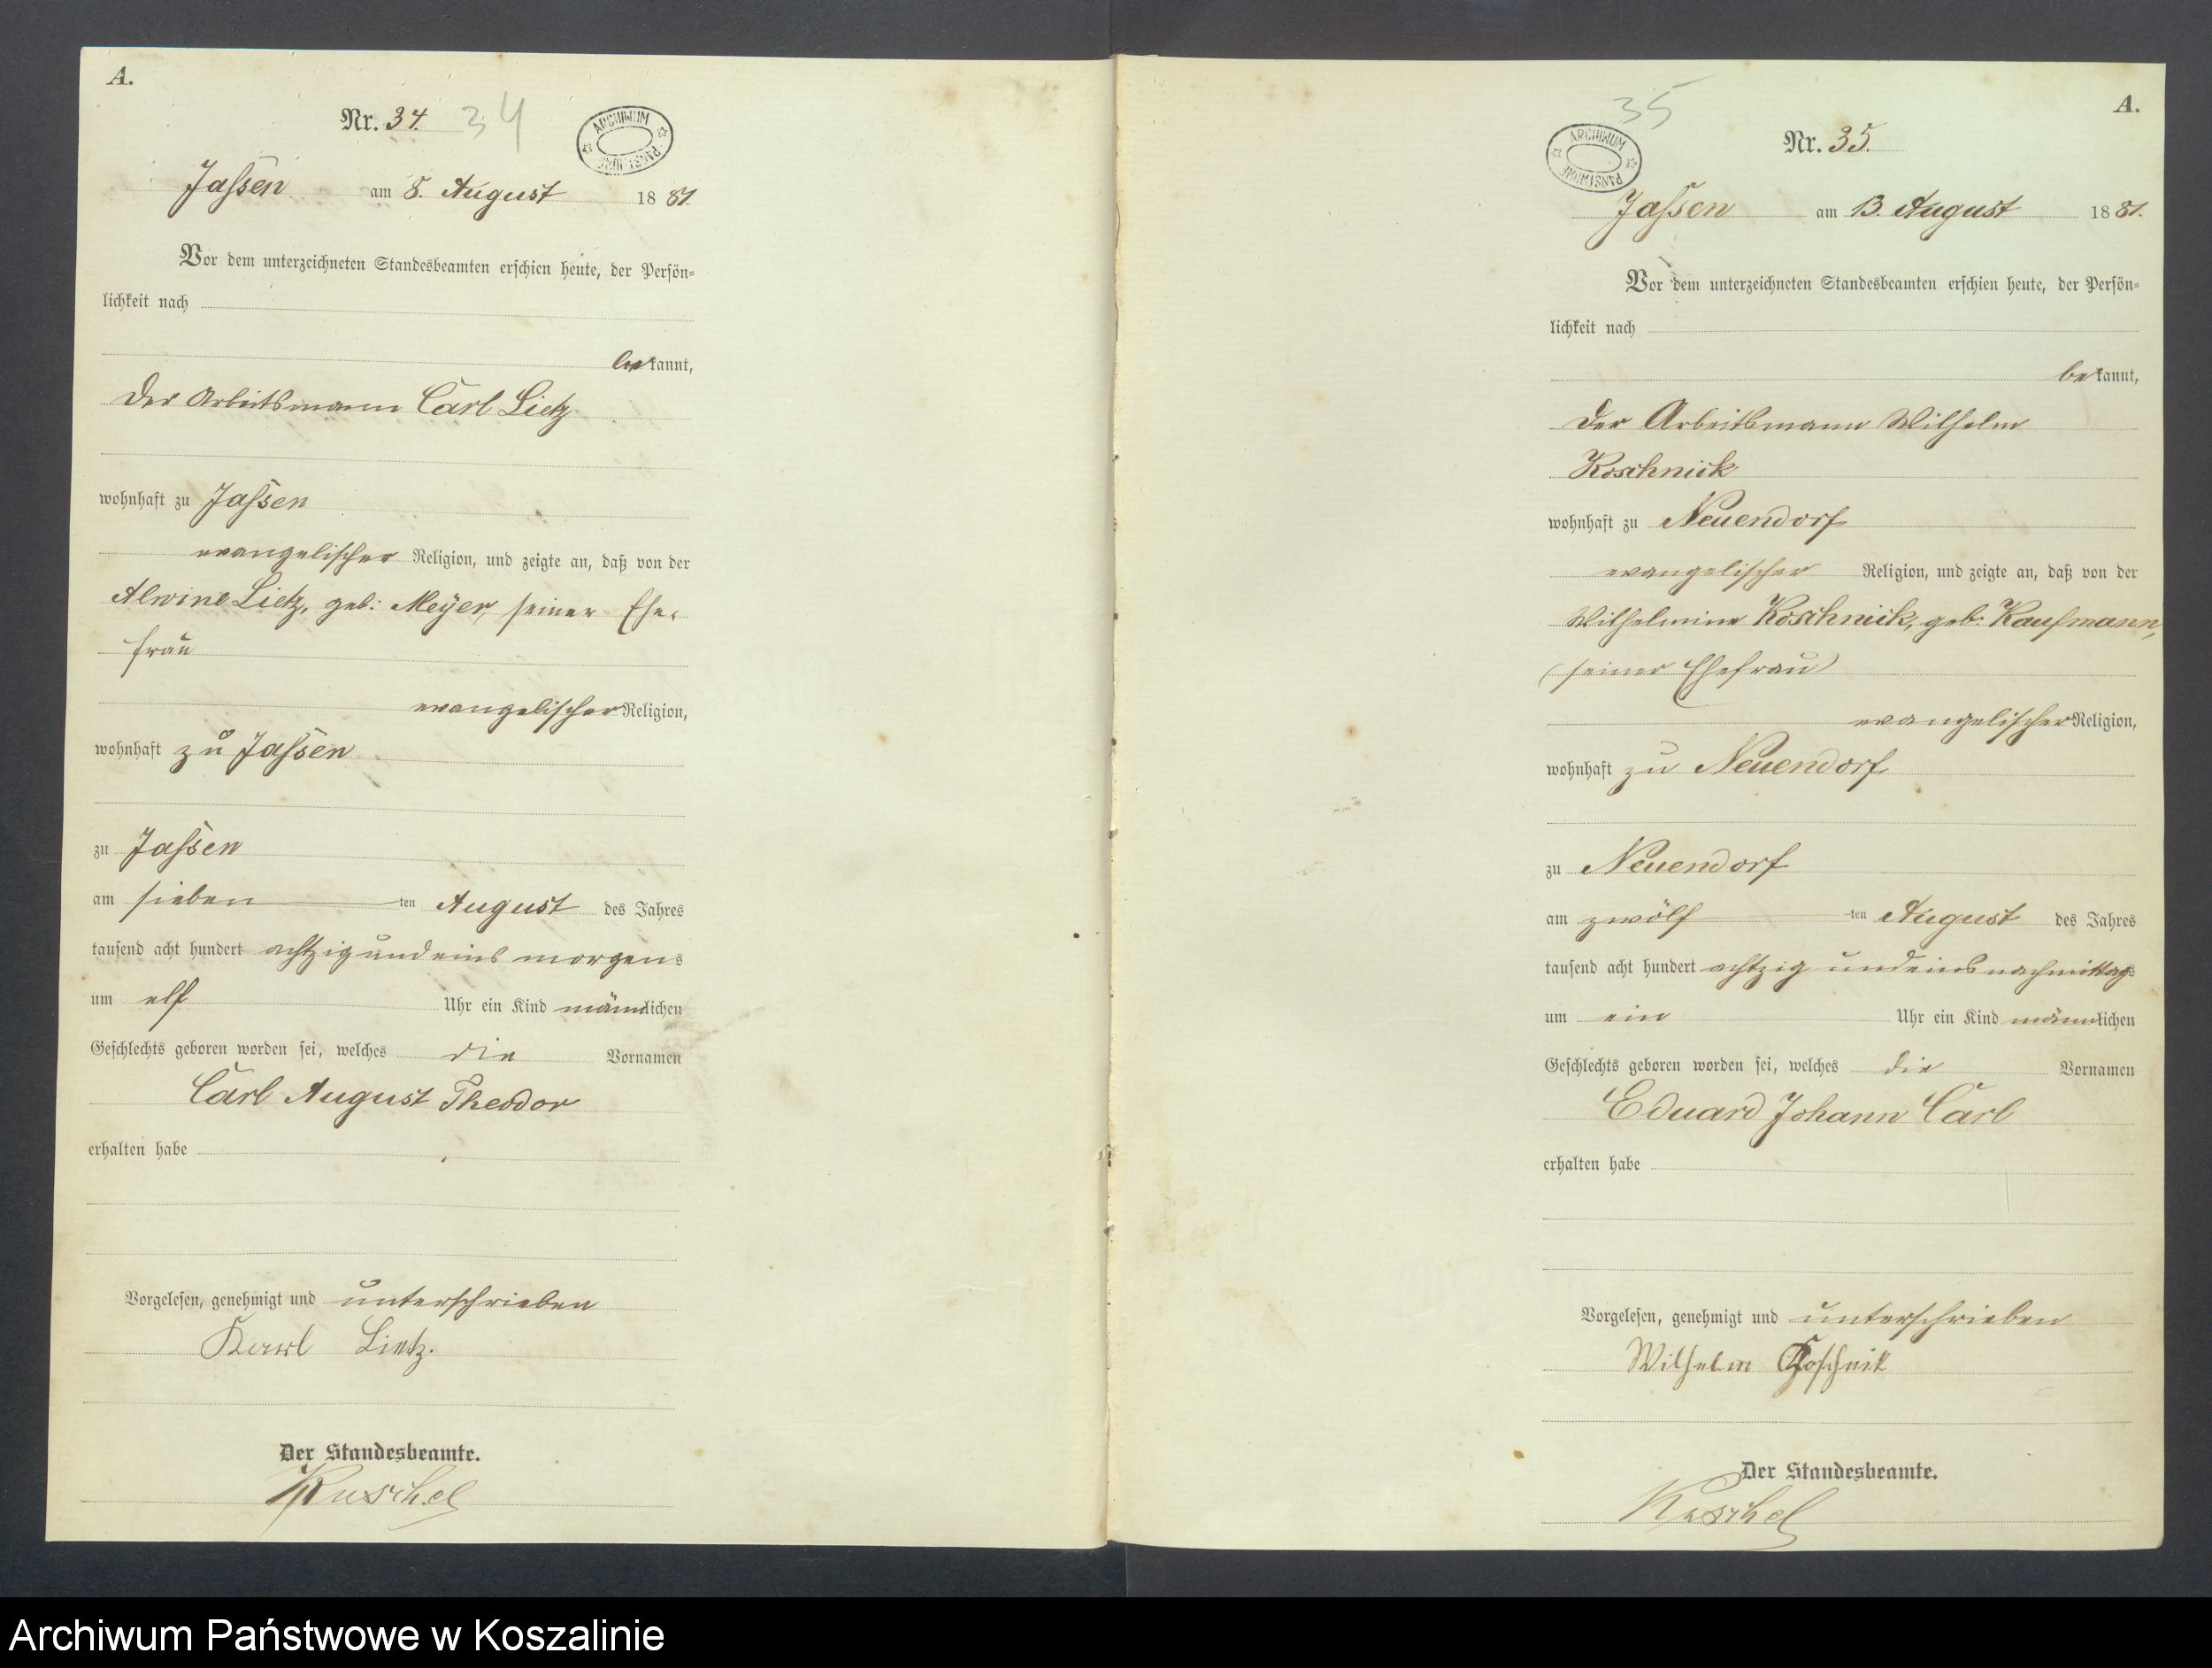 A.
Nr. 34. 34
ARCHIWUM PAŃSTWOWE
Jassen am 8. August 1881.
Vor dem unterzeichneten Standesbeamten erschien heute, der Persön-
lichkeit nach
bekannt,
der Arbeitsmann Carl Lietz
wohnhaft zu Jassen
evangelischer Religion, und zeigte an, daß von der
Alwine Lietz, geb: Meyer, seiner Ehe-
frau
evangelischer Religion,
wohnhaft zu Jassen
zu Jassen
am sieben ten August des Jahres
tausend acht hundert achtzig und eins morgens
um elf Uhr ein Kind männlichen
Geschlechts geboren worden sei, welches die Vornamen
Carl August Theodor
erhalten habe
Vorgelesen, genehmigt und unterschrieben
Karl Lietz.
Der Standesbeamte.
Kuschel
35
A.
Nr. 35.
ARCHIWUM PAŃSTWOWE
Jassen am 13. August 1881.
Vor dem unterzeichneten Standesbeamten erschien heute, der Persön-
lichkeit nach
bekannt,
der Arbeitsmann Wilhelm
Koschnick
wohnhaft zu Neuendorf
evangelischer Religion, und zeigte an, daß von der
Wilhelmine Koschnick, geb: Kaufmann,
(seiner Ehefrau)
evangelischer Religion,
wohnhaft zu Neuendorf
zu Neuendorf
am zwölf ten August des Jahres
tausend acht hundert achtzig und eins nachmittags
um ein Uhr ein Kind männlichen
Geschlechts geboren worden sei, welches die Vornamen
Eduard Johann Carl
erhalten habe
Vorgelesen, genehmigt und unterschrieben
Wilhelm Koschnik
Der Standesbeamte.
Kuschel
Archiwum Państwowe w Koszalinie